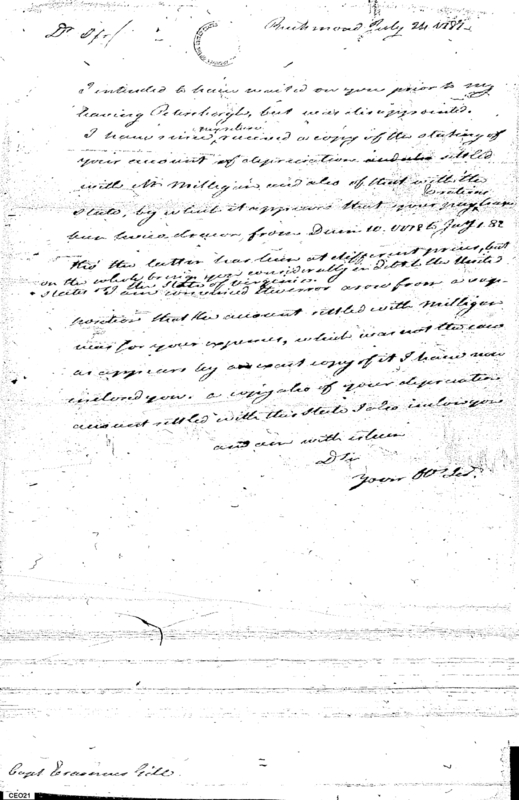 Richmond July 24 1787
Dr Sir/
I intended to have waited on you prior to my
leaving Petersburgh, but was disappointed.
I have since received a copy of the stating of
your account of depreciation settled
with Mr Milligan and also of that with the
State, by which it appears that your pay
been twice drawn from Decm 10. 1778 to Jany 1. 82
tho' the latter has been at different prices, but
on the whole brings you considerably in debt to the United
States or the State of Virginia
I am convinced the error arose from a sup-
position that the account settled with Milligan
was for your expences, which was not the case
as appears by an exact copy of it I have now
inclosed you. a copy also of your depreciation
account settled with this State I also inclose you
and am with esteem
D Sir
Your Ob Ser.
Capt Erasmus Gill
CEO21